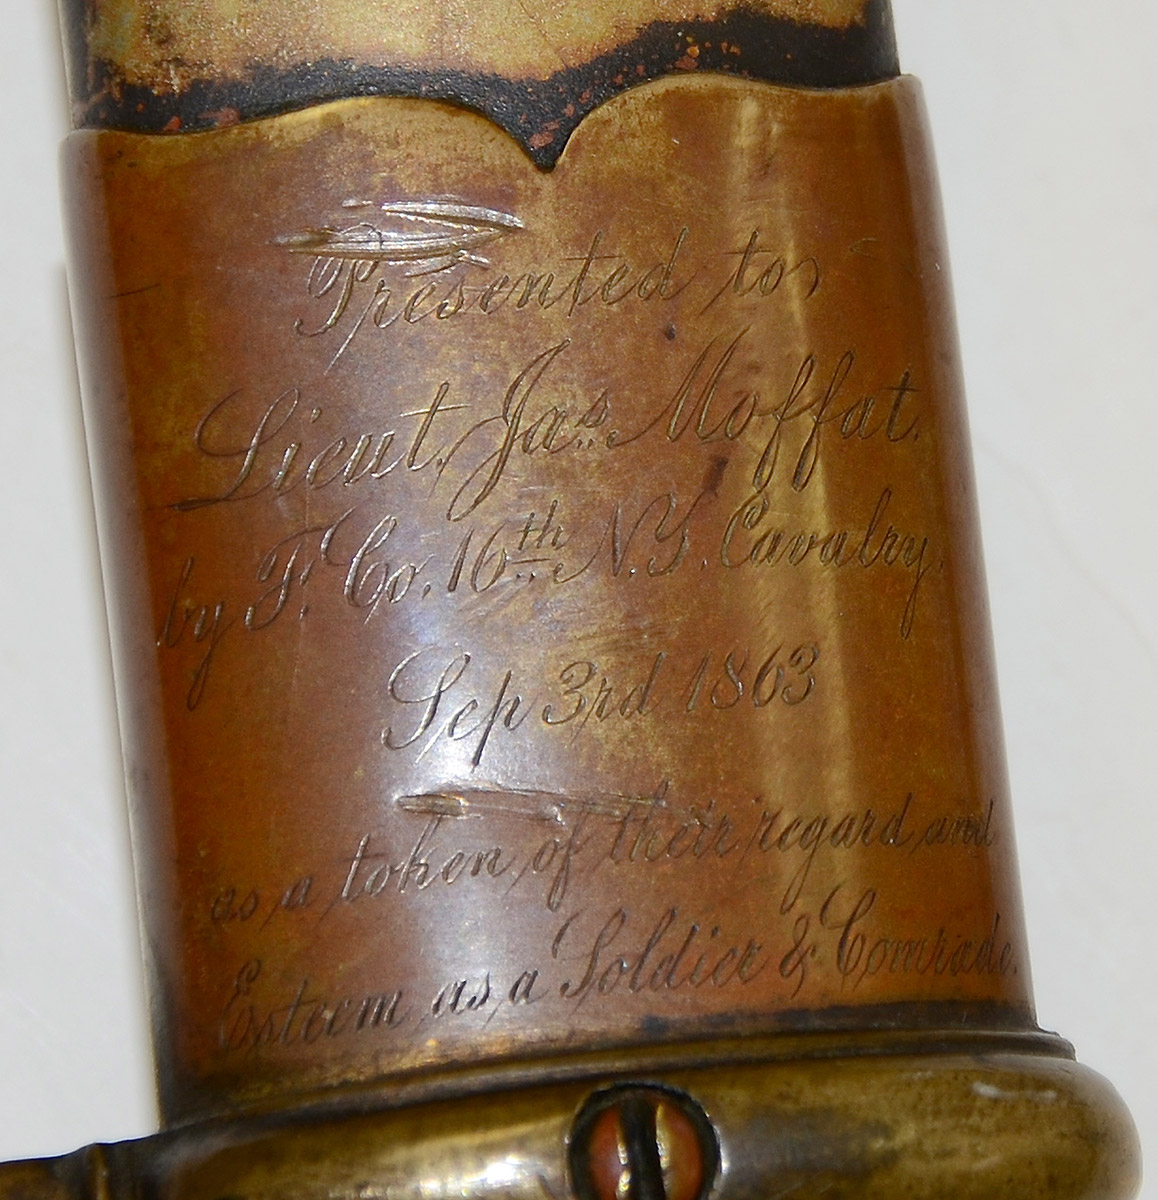 Presented to
Lieut. Jas. Moffat.
by F. Co. 16th N.Y. Cavalry.
Sep 3rd 1863
as a token of their regard and
Esteem as a Soldier & Comrade.